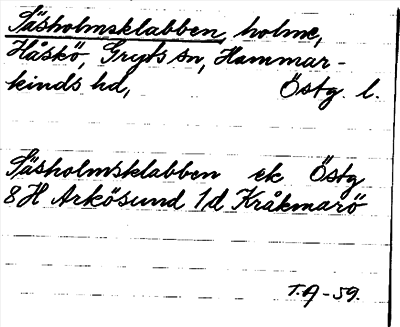 Säsholmsklabben, holme,
Håskö, Gryts sn, Hammar-
kinds hd, Östg. l.
Säsholmsklabben ek Östg
8H Arkösund 1d Kråkmarö
T.A-59.